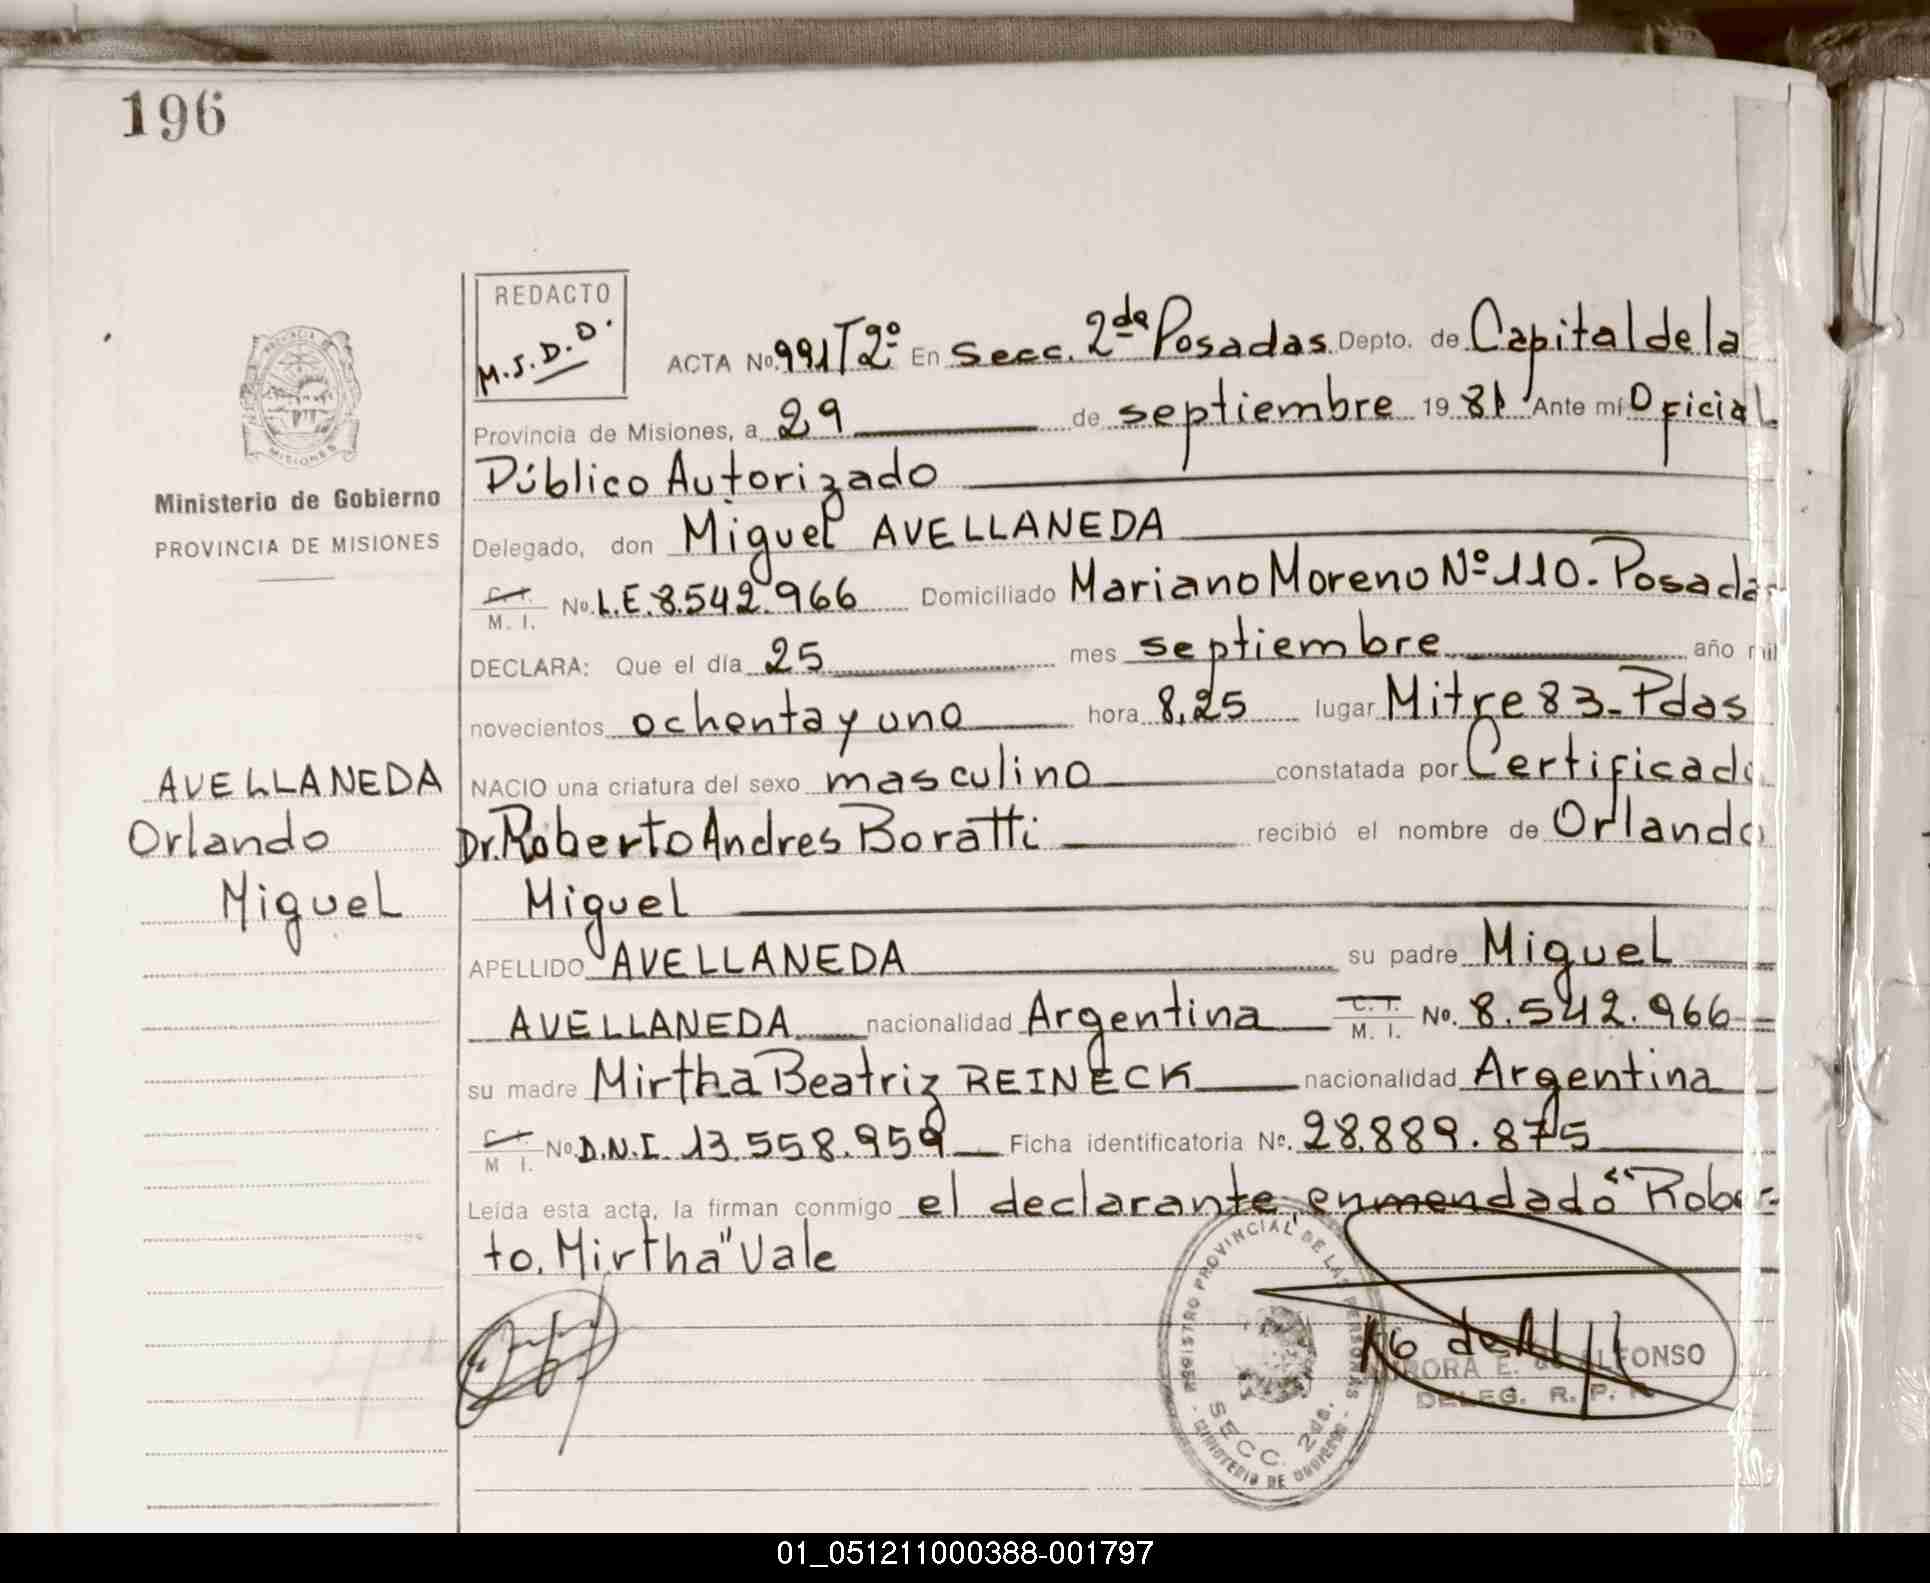 196
REDACTO
M.S.D.D.
ACTA No. 991 T2º En Secc. 2da Posadas Depto. de Capital de la
Provincia de Misiones, a 29 de septiembre 1981 Ante mí Oficial
Público Autorizado
Ministerio de Gobierno
PROVINCIA DE MISIONES
Delegado, don Miguel AVELLANEDA
C. I. M. I. No. L.E. 8.542.966 Domiciliado Mariano Moreno Nº 110. Posadas
DECLARA: Que el día 25 mes septiembre año mil
novecientos ochenta y uno hora 8,25 lugar Mitre 83_Pdas
NACIO una criatura del sexo masculino constatada por Certificado
Dr. Roberto Andres Boratti recibió el nombre de Orlando
Miguel
AVELLANEDA
Orlando
Miguel
APELLIDO AVELLANEDA su padre Miguel
AVELLANEDA nacionalidad Argentina C. I. M. I. No. 8.542.966
su madre Mirtha Beatriz REINECK nacionalidad Argentina
C. I. M I. No D.N.I. 13.558.959 Ficha identificatoria No. 28.889.875
Leída esta acta, la firman conmigo el declarante, enmendado "Rober-
to. Mirtha" Vale
REGISTRO PROVINCIAL DE LAS PERSONAS
SECC. 2da.
MINISTERIO DE GOBIERNO
E. de ALFONSO
DELEG. R. P. P.
MISIONES
01_051211000388-001797